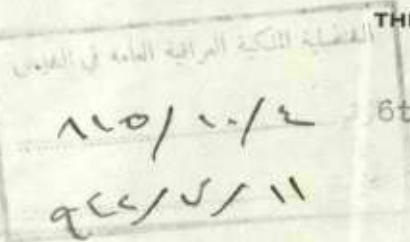 القنصلية الملكية العراقية العامه في القدس TH
٨١٥/١٠/٤ 6t
٩٤٤/٧/١١